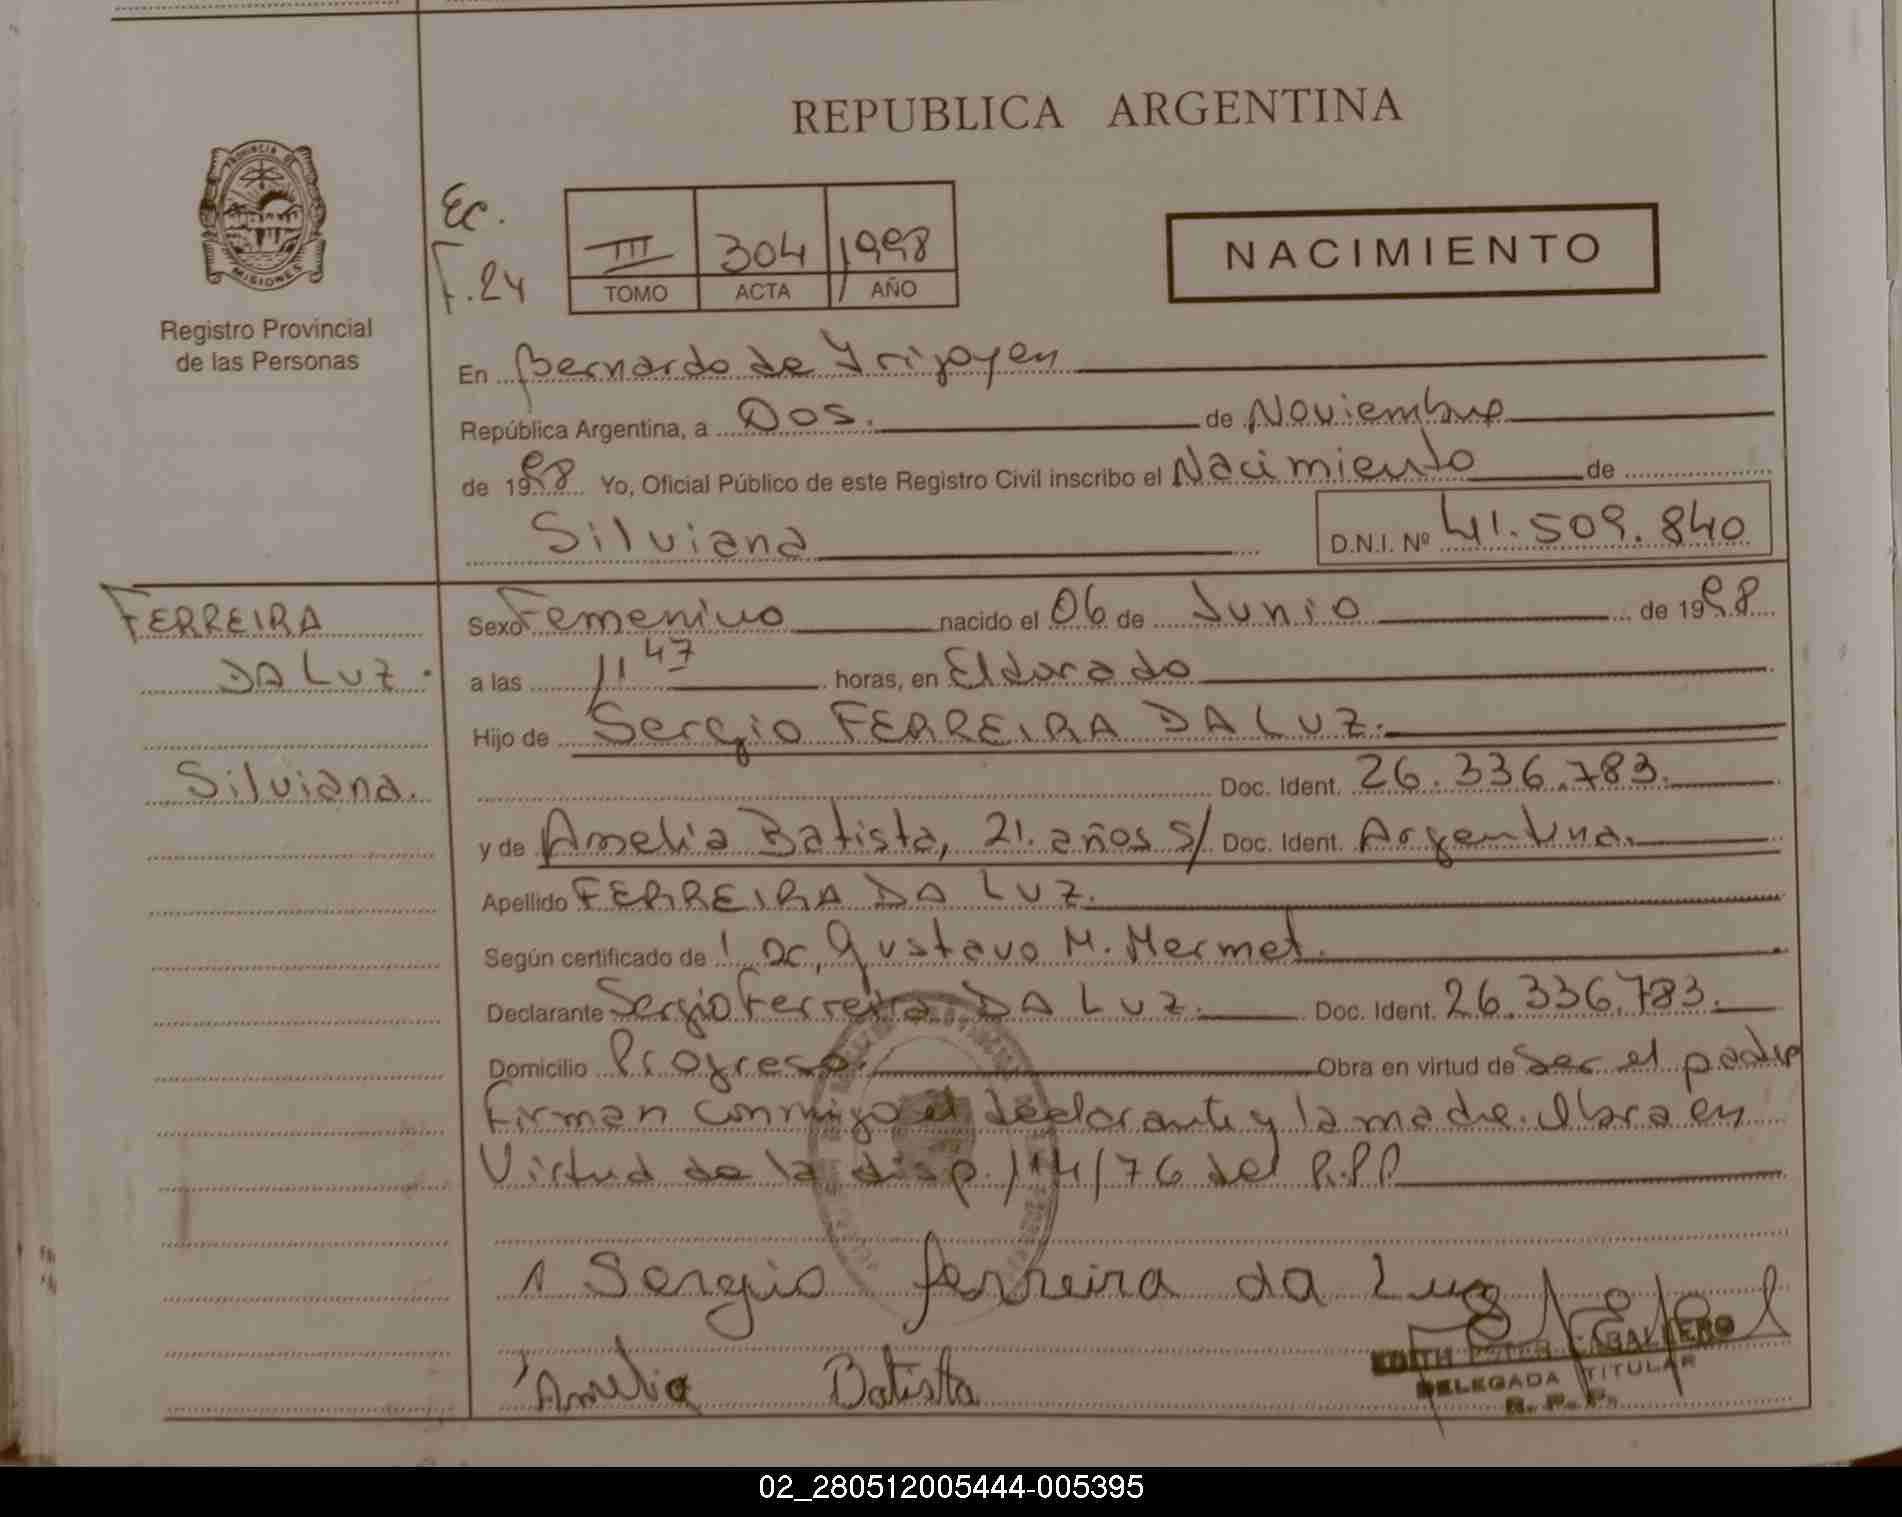 REPUBLICA ARGENTINA
PROVINCIA DE
MISIONES
Registro Provincial
de las Personas
Ec.
F. 24
III 304 1998
TOMO ACTA AÑO
NACIMIENTO
En Bernardo de Yrigoyen
República Argentina, a Dos. de Noviembre
de 1998 Yo, Oficial Público de este Registro Civil inscribo el Nacimiento de
Silviana D.N.I. Nº 41.509.840
FERREIRA
DA LUZ.
Silviana.
Sexo Femenino nacido el 06 de Junio de 1998
a las 11 47 horas, en Eldorado
Hijo de Sergio FERREIRA DA LUZ.
Doc. Ident. 26.336.783.
y de Amelia Batista, 21. años s/ Doc. Ident. Argentina.
Apellido FERREIRA DA LUZ.
Según certificado de Dr. Gustavo M. Mermet.
Declarante Sergio Ferreira DA LUZ. Doc. Ident. 26.336.783.
Domicilio Progreso. Obra en virtud de ser el padre
Firman conmigo el declarante y la madre. Obra en
Virtud de la disp. 114/76 del R.P.P
Sergio ferreira da Luz
Amelia Batista
EDITH CABALLERO
DELEGADA TITULAR
R. P. P.
02_280512005444-005395